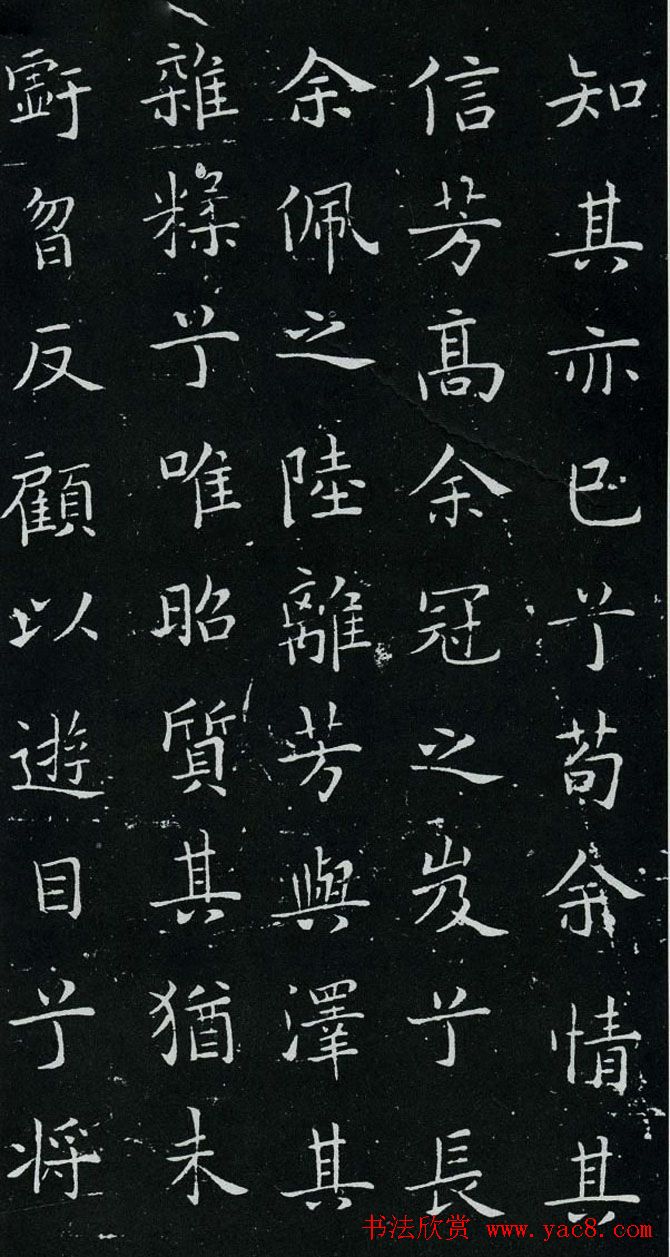 知其亦已兮苟余情其
信芳髙余冠之岌兮長
余佩之陸離芳與澤其
雜糅兮唯昭質其猶未
虧曶反顧以遊目兮将
书法欣赏 www.yac8.com